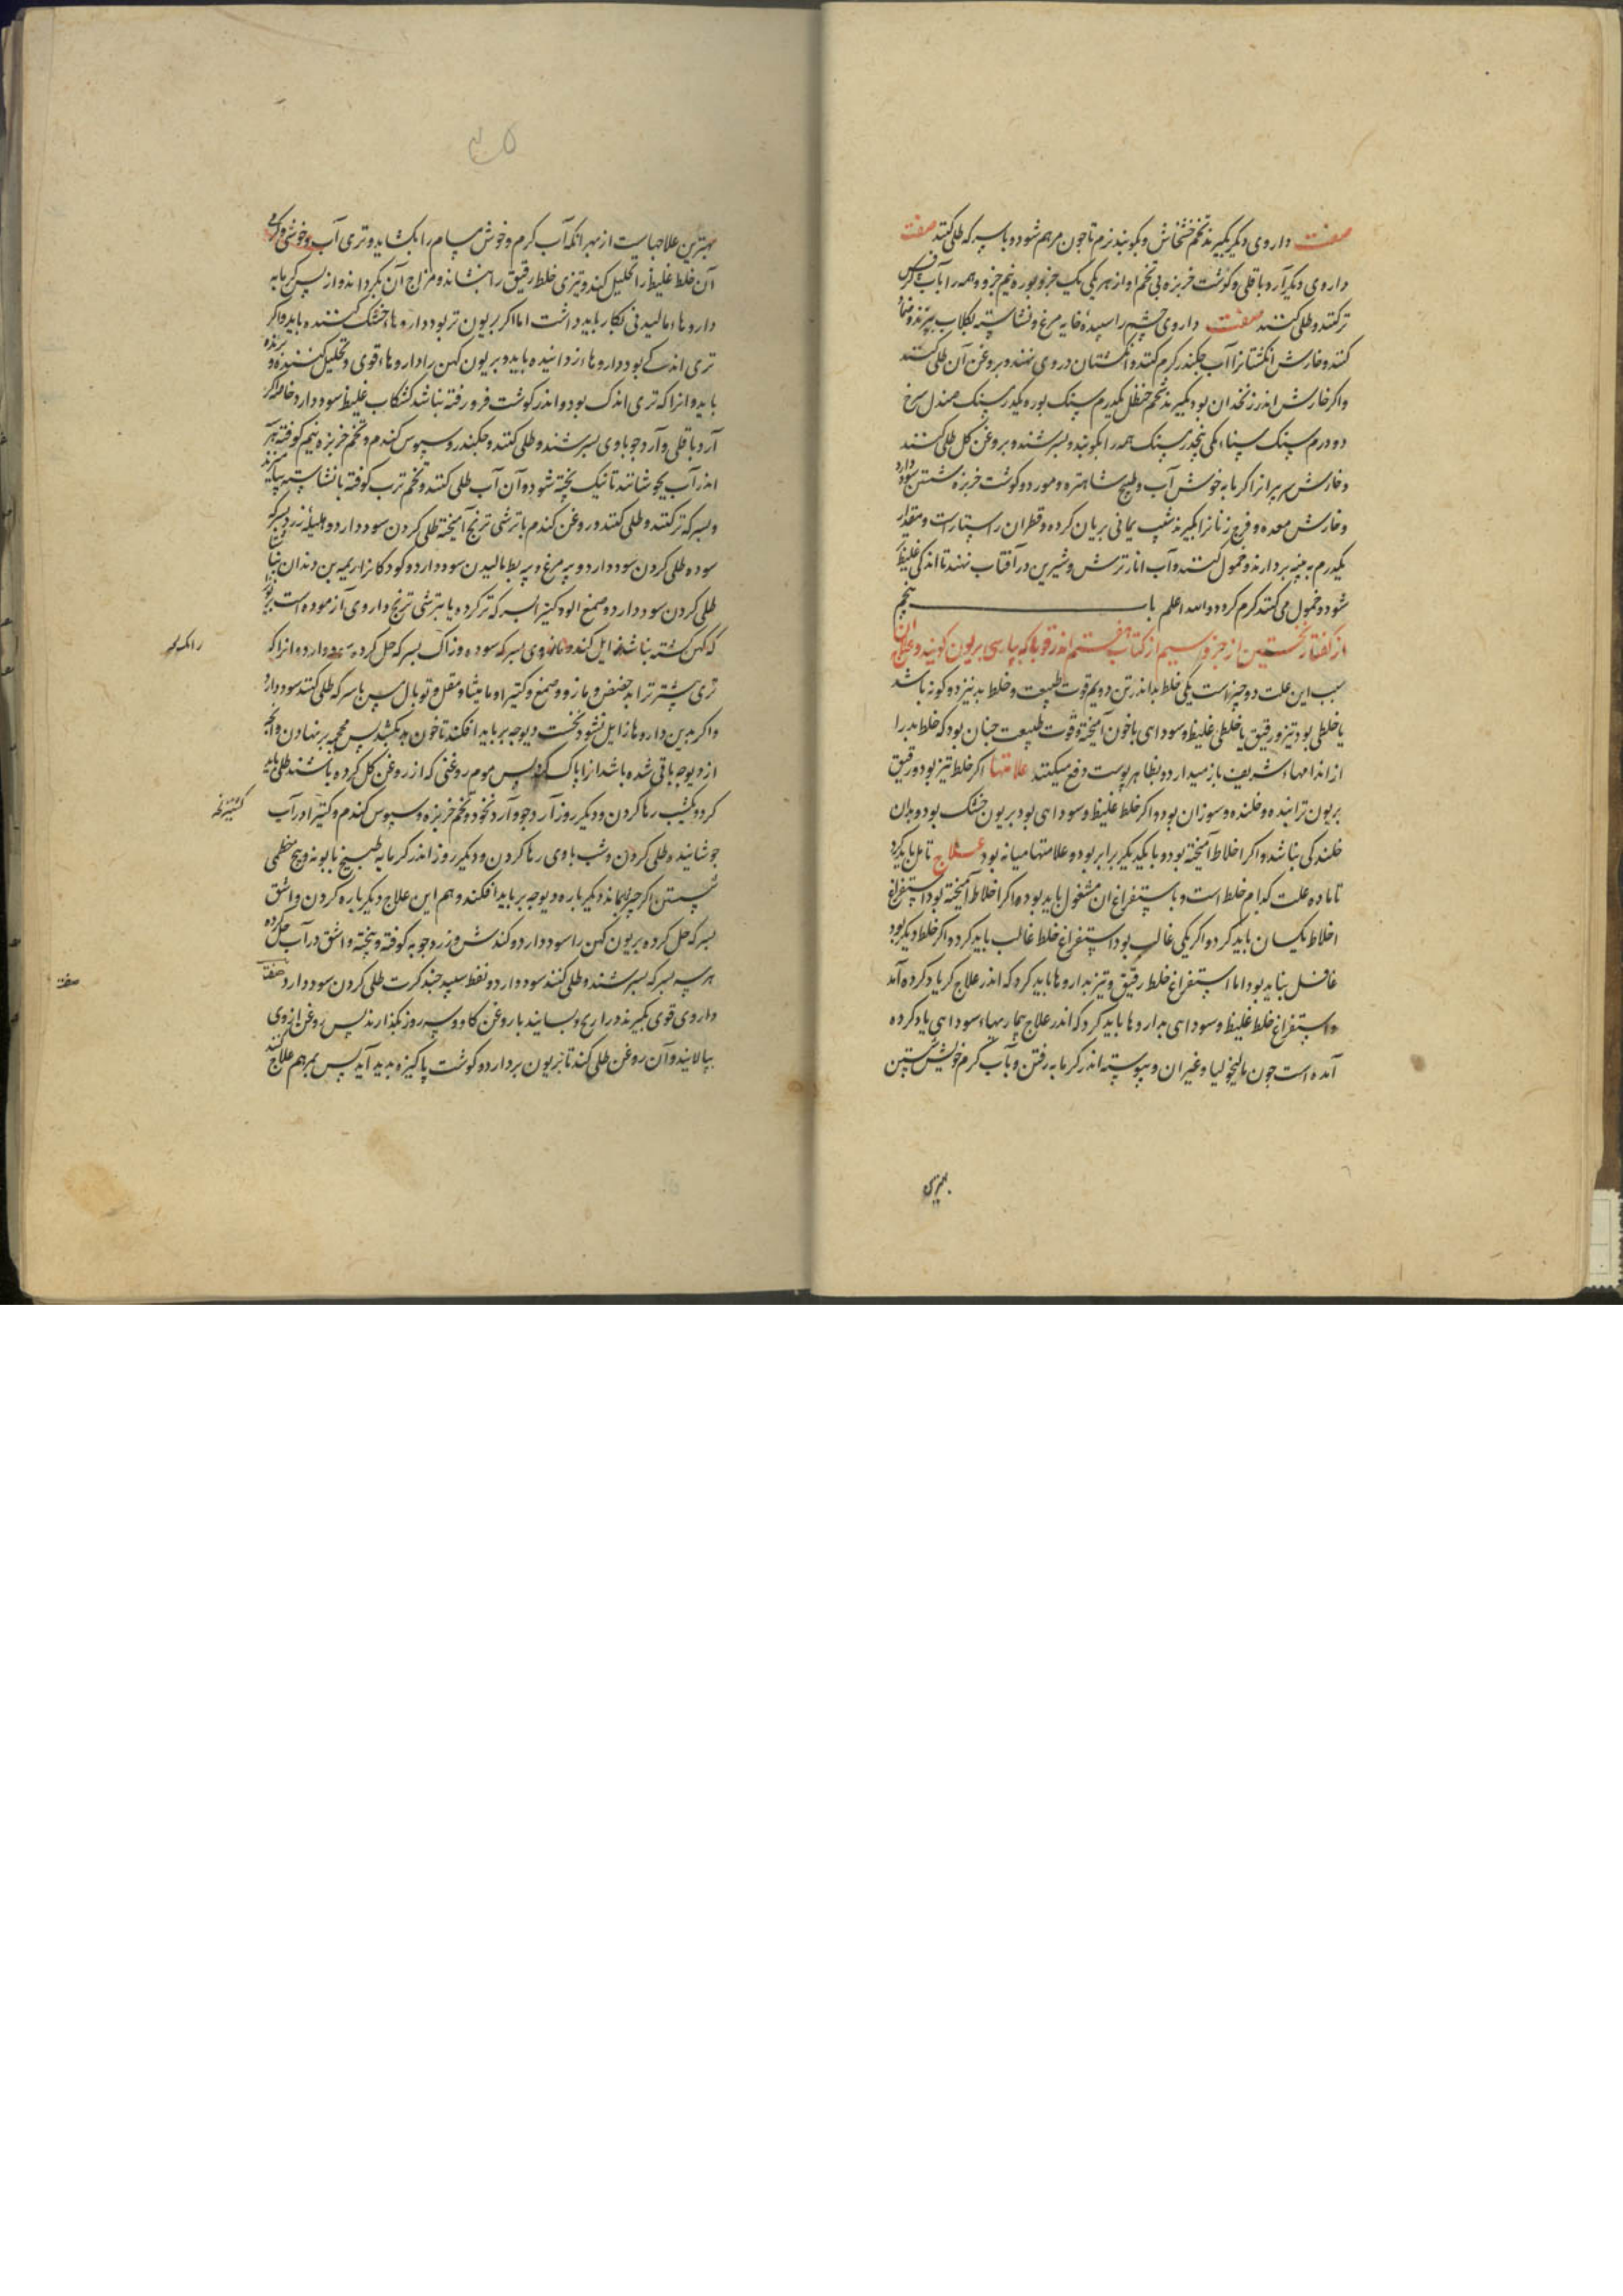 صفت داروی دیکر بکیرند تخم خشخاش و بکوبند نرم تا جون مرهم شود و با سرکه طلی کنند صفت
داروی دیکر آرد باقلی و کوشت خربزه بی تخم او از هر یکی یک جزو بوره نیم جزو و همه را بآب
تر کنند و طلی کنند صفت داروی چشم را سپیدهٔ خایه مرغ و نشاسته بکلاب بپزند و ضماد
کنند و خارش انکشتانرا آب جکندر کرم کنند و انکشتان در وی نهند و بروغن آن طلی کنند
واکر خارش اندر زنخدان بود بکیرند تخم حنظل یکدرم سنک بوره یکدرم سنک صندل سرخ
دو درم سنک سناء مکی پنجدرم سنک همه را بکوبند و بسرشند و بروغن کل طلی کنند
و خارش پیرانرا کرمابه خوش آب و طبیخ شاهتره و مورد و کوشت خربزه شستن سود دارد
و خارش معده و فرج زنانرا بکیرند شب یمانی بریان کرده و قطران راستاراست و مقدار
یکدرم به پنبه بردارند و حمول کنند و آب انار ترش و شیرین در آفتاب نهند تا اندکی غلیظ
شود و حمول می کنند کرم کرده والله اعلم باب پنجم
از کفتار نخستین از جزو سیم از کتاب هفتم اندر قوبا که بپارسی بریون کویند و علاج آن
سبب این علت دو چیز است یکی خلط بد اندر تن دویم قوت طبیعت و خلط بد نیز دو کونه باشد
یا خلطی بود تیز و رقیق یا خلطی غلیظ و سوداوی با خون آمیخته و قوت طبیعت جنان بود که خلط بد را
از اندامهاء شریف باز میدارد و بظاهر پوست دفع میکند علامتها اکر خلط تیز بود و رقیق
بریون ترابنده و خلنده و سوزان بود و اکر خلط غلیظ و سوداوی بود بریون خشک بود و بدان
خلندکی نباشد و اکر اخلاط آمیخته بود و با یکدیکر برابر بود و علامتها میانه بود علاج تامل باید کرد
تا ماده علت کدام خلط است و باستفراغ آن مشغول باید بود و اکر اخلاط آمیخته بود استفراغ
اخلاط یکسان باید کرد و اکر یکی غالب بود استفراغ خلط غالب باید کرد و اکر خلط دیکر بود
غافل نباید بود اما استفراغ خلط رقیق و تیز بداروها باید کرد که اندر علاج کر یاد کرده آمد
و استفراغ خلط غلیظ و سوداوی بداروها باید کرد که اندر علاج بیماریهاء سوداوی یاد کرده
آمده است جون مالیخولیا و غیر آن و پیوسته اندر کرمابه رفتن و بآب کرم خویش شستن
بهترین
بهترین علاجهاست از بهر انکه آب کرم و خوش مسام را بکشاید و تری آب و خوشی و کرمی
آن خلط غلیظ را تحلیل کند و تیزی خلط رقیق را بنشاند و مزاج آن بکرداند و از پس کرمابه
داروهاء مالیدنی بکار باید داشت اما اکر بریون تر بود داروهاء خشک کننده باید و اکر
تری اندکی بود داروهاء زداینده باید و بریون کهن را داروهاء قوی و تحلیل کننده و
باید و آنرا که تری اندک بود و اندر کوشت فرو رفته نباشد کشکاب غلیظ سود دارد خاصه اکر
آرد باقلی و آرد جو با وی بسرشند و طلی کنند و جکندر و سپوس کندم و تخم خربزه نیم کوفته
اندر آب بجوشانند تا نیک پخته شود و آن آب طلی کنند و تخم ترب کوفته با نشاسته بیامیزند
و بسرکه تر کنند و طلی کنند و روغن کندم با ترشی ترنج آمیخته طلی کردن سود دارد و هلیلهٔ زرد بسرکه
سوده طلی کردن سود دارد و پیه مرغ و پیه بط مالیدن سود دارد و کودکانرا ریمه بن دندان
طلی کردن سود دارد و صمغ الو و کتیرا بسرکه تر کرده یا بترشی ترنج داروی آزموده است
که کهن کشته نباشد زایل کند و بسرکه سوده و زاک بسرکه حل کرده سود دارد و انرا که
تری بیشتر ترابد و مازو و صمغ و کتیرا و مامیثا و مقل و توبال مس با سرکه طلی کنند سود دارد
و اکر بدین داروها زایل نشود نخست دیوجه بر باید افکند تا خون بد بکشد پس محجمه بر نهادن و انچه
از دیوچه باقی شده باشد از آن پاک کردن پس موم روغنی که از روغن کل کرده باشند طلی باید
کرد و یکشب رها کردن و دیکر روز آرد جو و آرد نخود و تخم خربزه و سپوس کندم و کتیرا در آب
جوشانیده طلی کردن و شب با وی رها کردن و دیکر روز اندر کرمابه بطبیخ بابونه و بیخ خطمی
شستن اکر چیزی بماند دیکر باره دیوچه بر باید افکند و هم این علاج دیکر باره کردن و اشق
بسرکه حل کرده بریون کهن را سود دارد و کندش و زردجوبه کوفته و پخته و اشق در آب حل کرده
هر سه بسرکه بسرشند و طلی کنند سود دارد و نفط سپید جند کرت طلی کردن سود دارد صفت
داروی قوی بکیرند ذراریح و بسایند با روغن کاو و سه روز بکذارند پس روغن از وی
بپالایند و آن روغن طلی کنند تا بریون بردارد و کوشت پاکیزه پدید آید پس بمرهم علاج کنند
صفت